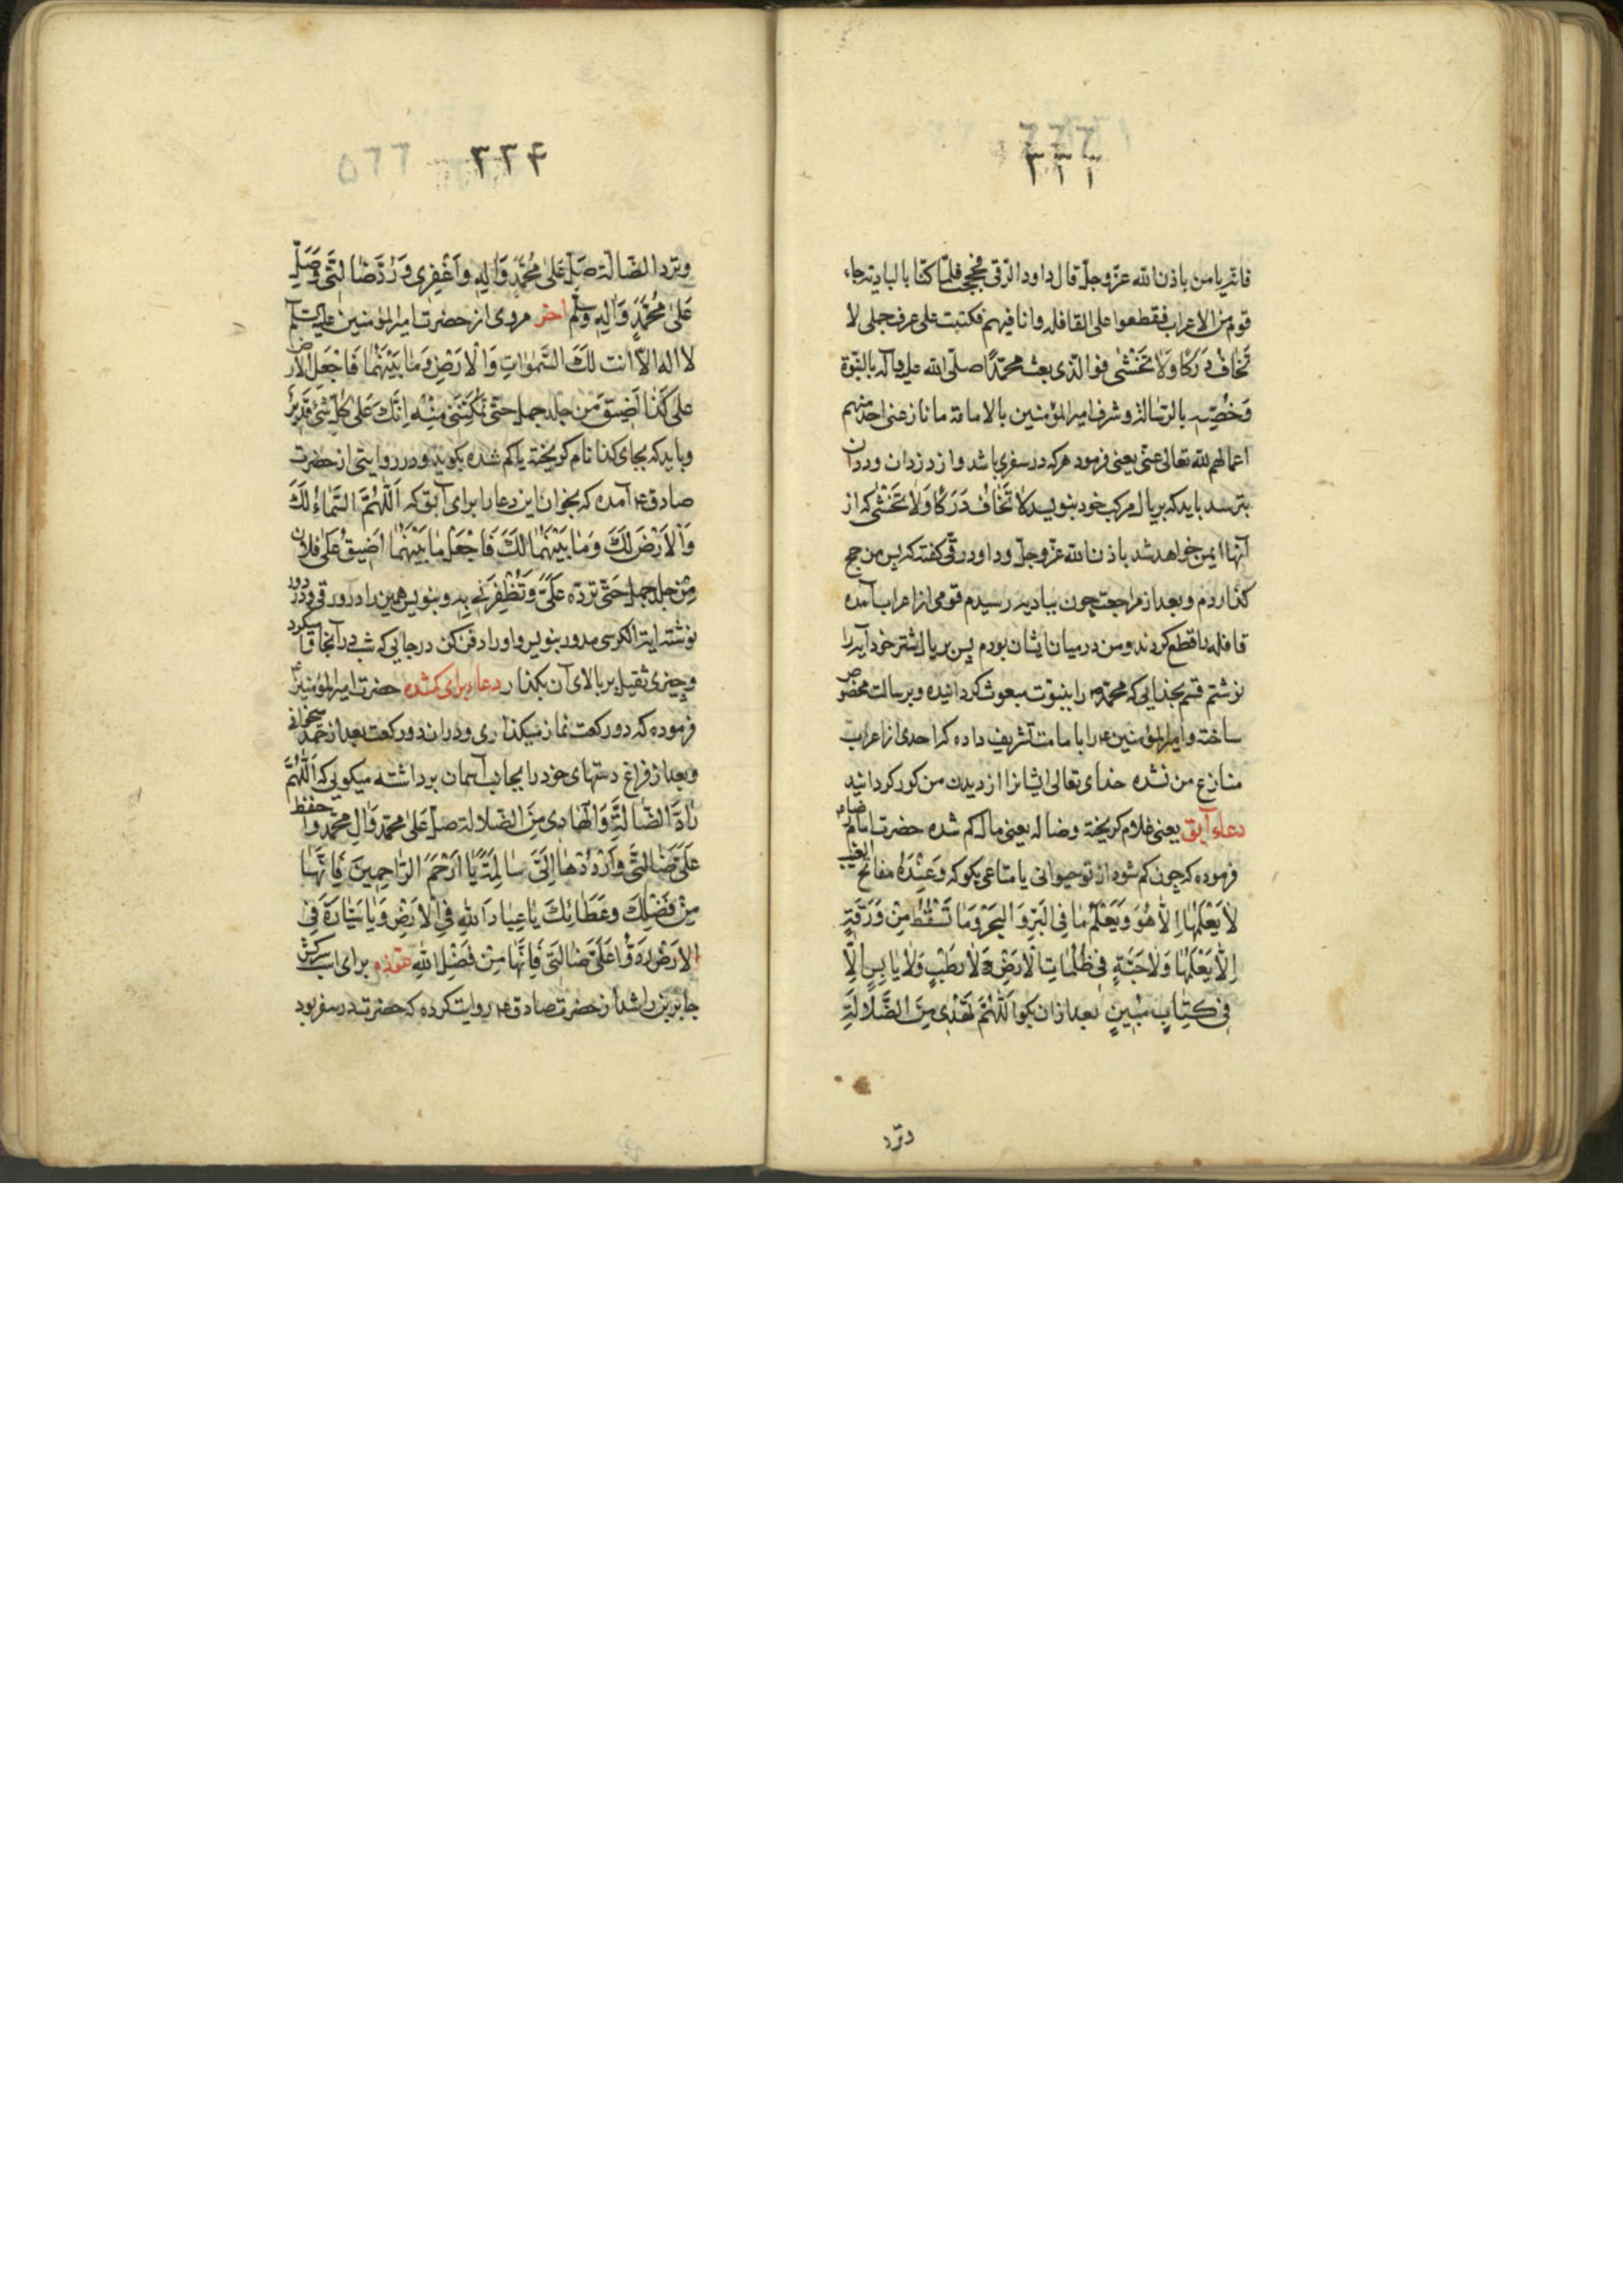 ٣٣٣
فانه یامن باذن الله عزوجل قال داود الرقی فحججت فلما کنا بالبادیة جاء
قوم من الاعراب فقطعوا علی القافله وانا فیهم فکتبت علی عرف جملی لا
تَخافُ دَرَکًا وَلا تَخْشٰی فوالذی بعث محمدًا صلی الله علیه وآله بالنبوة
وَخصّه بالرسالة وشرف امیرالمؤمنین بالامامة ما نازعنی احد منهم
اعماهم الله تعالی عنّی یعنی فرمود هرکه در سفری باشد واز دزدان وددان
بترسد باید که بر یال مرکب خود بنویسد که لا تَخافُ دَرَکًا وَلا تَخْشٰی که از
آنها ایمن خواهد شد باذن الله عزوجل وداود رقی گفته که پس من حج
کذاردم وبعد از مراجعت چون ببادیه رسیدم قومی از اعراب آمده
قافله را قطع کردند ومن در میان ایشان بودم پس بر یال شتر خود آیه را
نوشتم قسم بخدایی که محمد ص را بنبوت مبعوث کردانیده وبرسالت مخصوص
ساخته وامیرالمؤمنین ع را بامامت تشریف داده که احدی از اعراب
منازع من نشده خدای تعالی ایشانرا از دیدن من کور کردانید
دعاء آبق یعنی غلام کریخته وضاله یعنی مال کم شده حضرت امام
فرموده که چون کم شود از تو حیوانی یا متاعی بکو که وَعِنْدَهُ مفاتح الغیب
لا یَعْلَمُها اِلّا هُوَ وَیَعْلَمُ ما فِی البَرِّ وَ البَحْرِ وَما تَسْقُطُ مِنْ وَرَقَةٍ
اِلّا یَعْلَمُها وَلا حَبَّةٍ فی ظُلُماتِ الْاَرْضِ وَلا رَطْبٍ وَلا یابِسٍ اِلّا
فی کِتابٍ مُبینٍ بعد ازان بکو اَللّٰهُمَّ تَهْدی مِنَ الضَّلالَةِ
وترد
٣٣٤
وترد الضّالّة صَلِّ عَلیٰ مُحَمَّدٍ وَآلِهِ وَاغْفِرْلی وَرُدَّ ضالَّتی وَصَلِّ
عَلیٰ مُحَمَّدٍ وَآلِهِ وسلم اخر مروی از حضرت امیرالمؤمنین علیه السلم
لا اله الّا انت لَکَ السَّمٰواتِ وَالْاَرْضِ وَما بَیْنَهُما فَاجْعَلِ الارض
علی کَذا اَضْیَقَ مِن جلد جمل حتّی تُمَکِّنَنی مِنْهُ اِنَّکَ عَلی کُلِّ شَیءٍ قَدیرٌ
وباید که بجای کذا نام کریخته یا کم شده بکوید ودر روایتی از حضرت
صادق ع آمده که بخوان این دعا را برای آبق که اَللّٰهُمَّ السَّماءُ لَکَ
وَالْاَرْضَ لَکَ وَما بَیْنَهُما لَکَ فَاجْعَلْ ما بَیْنَهُما اَضْیَقَ عَلیٰ فلان
مِن جلد جمل حَتّی تردّه عَلَیَّ وَتُظْفِرَنی بِهِ وبنویس همین را در ورقی ودور
نوشته ایة الکرسی مدور بنویس واو را دفن کن در جایی که شب در آنجا
وچیزی ثقیل بر بالای آن بکذار دعا برای کمشده حضرت امیرالمؤمنین ع
فرموده که دو رکعت نماز میکذاری ودر ان دو رکعت بعد از حمد میخوانی
وبعد از فراغ دستهای خود را بجانب آسمان برداشته میکویی که اَللّٰهُمَّ
رادَّ الضّالَّةِ وَالْهادی مِنَ الضّلالة صلّ عَلیٰ محمّد وَآلِ محمّد وَاحفظ
عَلَیَّ ضالَّتی وَارْدُدْها اِلَیَّ سالِمَةً یا اَرْحَمَ الرّاحِمینَ فَاِنَّها
مِنْ فَضْلِکَ وَعَطائِکَ یا عِبادَ اللهِ فِی الْاَرْضِ وَیا سَیّارَةَ فِی
الارْضِ رُدّوا عَلَیَّ ضالَّتی فَاِنَّها مِنْ فَضْلِ اللهِ برای اسب سرکش
جابر بن راشد از حضرت صادق ع روایت کرده که حضرت در سفر بود